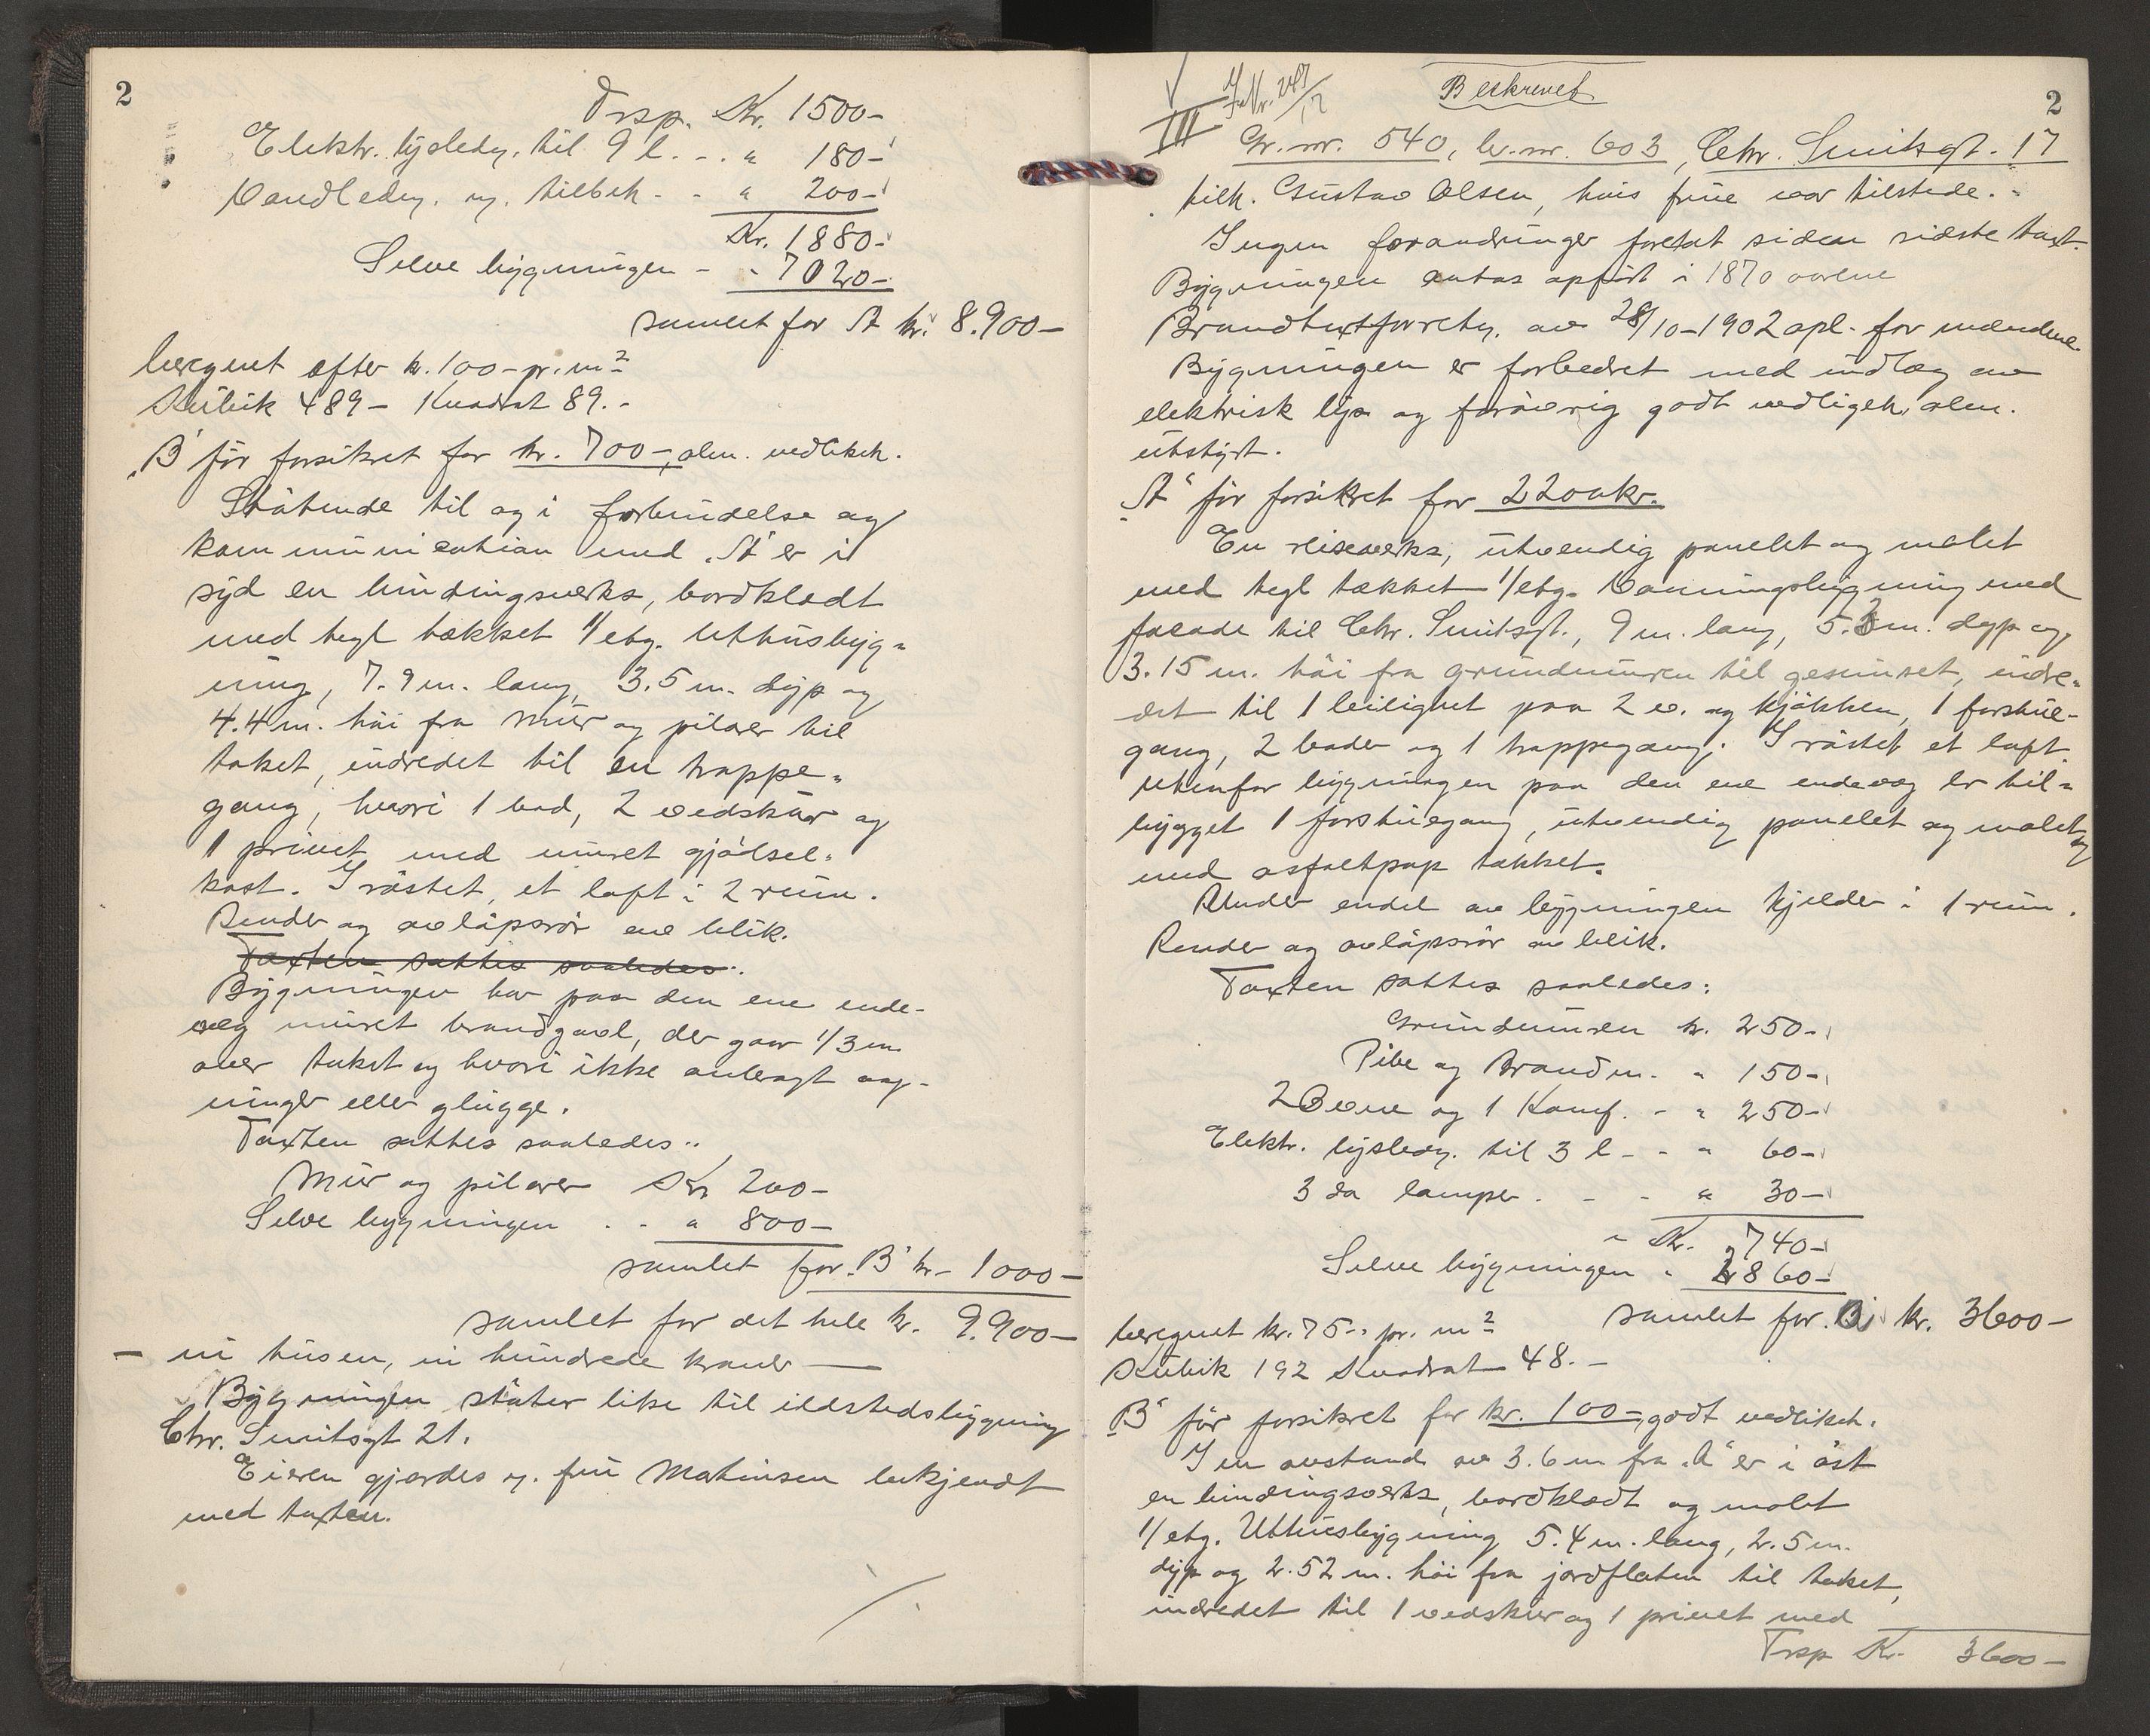 2
Trsp. Kr. 1500-
Elektr. lysledn. til 9 l. - . " 180-
Vandledn. m. tilbeh - - " 200-
Kr. 1880-
Selve bygningen - " 7020-
samlet for A kr. 8.900-
beregnet efter kr. 100- pr. m²
Kubik 489- Kvadrat 89.-
"B" før forsikret for kr. 700-, alm. vedlikeh.
Støtende til og i forbindelse og
kommunication med "A" er i
syd en bindingsverks, bordklædt
med tegl tækket 1/etg. Uthusbyg-
ning, 7.9 m. lang, 3.5 m. dyp og
4.4 m. høi fra mur og pilarer til
taket, indredet til en trappe-
gang, hvori 1 bod, 2 vedskur og
1 privet med muret gjødsel-
kast. I røstet, et loft i 2 rum.
Render og avløpsrør av blik.
Taxten sattes saaledes:
Bygningen har paa den ene ende-
væg muret brandgavl, der gaar 1/3 m
over taket og hvori ikke anbragt aap-
ninger eller glugge.
Taxten sattes saaledes:
Mur og pilarer Kr. 200-
Selve bygningen . . " 800-
samlet for "B" kr- 1000-
samlet for det hele kr. 9.900-
- ni tusen, ni hundrede kroner -
Bygningen støter like til ildstedsbygning
Chr. Smitsgt 21.
Eieren gjordes v. fru Martinsen bekjendt
med taxten.
III J.Nr. 247/12
Beskrevet
2
Gr. nr. 540, br. nr. 603, Chr. Smitsgt. 17
tilh. Gustav Olsen, hvis frue var tilstede.
Ingen forandringer foretat siden sidste taxt.
Bygningen antas opført i 1870 aarene
Brandtaxtforretn. av 28/10-1902 opl. for mændene.
Bygningen er forbedret med indlæg av
elektrisk lys og forøvrig godt vedligeh. alm.
utstyrt.
"A" før forsikret for 2200kr.
En reiseverks, utvendig panelet og malet
med tegl tækket 1/etg. Vaaningsbygning med
facade til Chr. Smitsgt., 9 m. lang, 5.3 m. dyp og
3.15 m. høi fra grundmuren til gesimset, indre-
det til 1 leilighet paa 2 v. og kjøkken, 1 forstue-
gang, 2 boder og 1 trappegang. I røstet et loft.
Utenfor bygningen paa den ene endevæg er til-
bygget 1 forstuegang, utvendig panelet og malet og
med asfaltpap tækket.
Under endel av bygningen kjelder i 1 rum.
Render og avløpsrør av blik.
Taxten sattes saaledes:
Grundmuren kr. 250-
Pibe og Brandm. " 150-
2 Ovne og 1 Komf. - " 250-
Elektr. lysledn. til 3 l - - " 60-
3 do lamper . - - " 30-
Kr. 740-
Selve bygningen " 2860-
samlet for "A" kr. 3600-
beregnet kr. 75- pr. m²
Kubik 192 Kvadrat 48.-
"B" før forsikret for kr. 100-, godt vedlikeh.
I en avstand av 3.6 m fra "A" er i øst
en bindingsverks, bordklædt og malet
1/etg. Uthusbygning 5.4 m. lang, 2.5 m.
dyp og 2.52 m. høi fra jordflaten til taket,
indredet til 1 vedskur og 1 privet med
Trsp Kr. 3600-